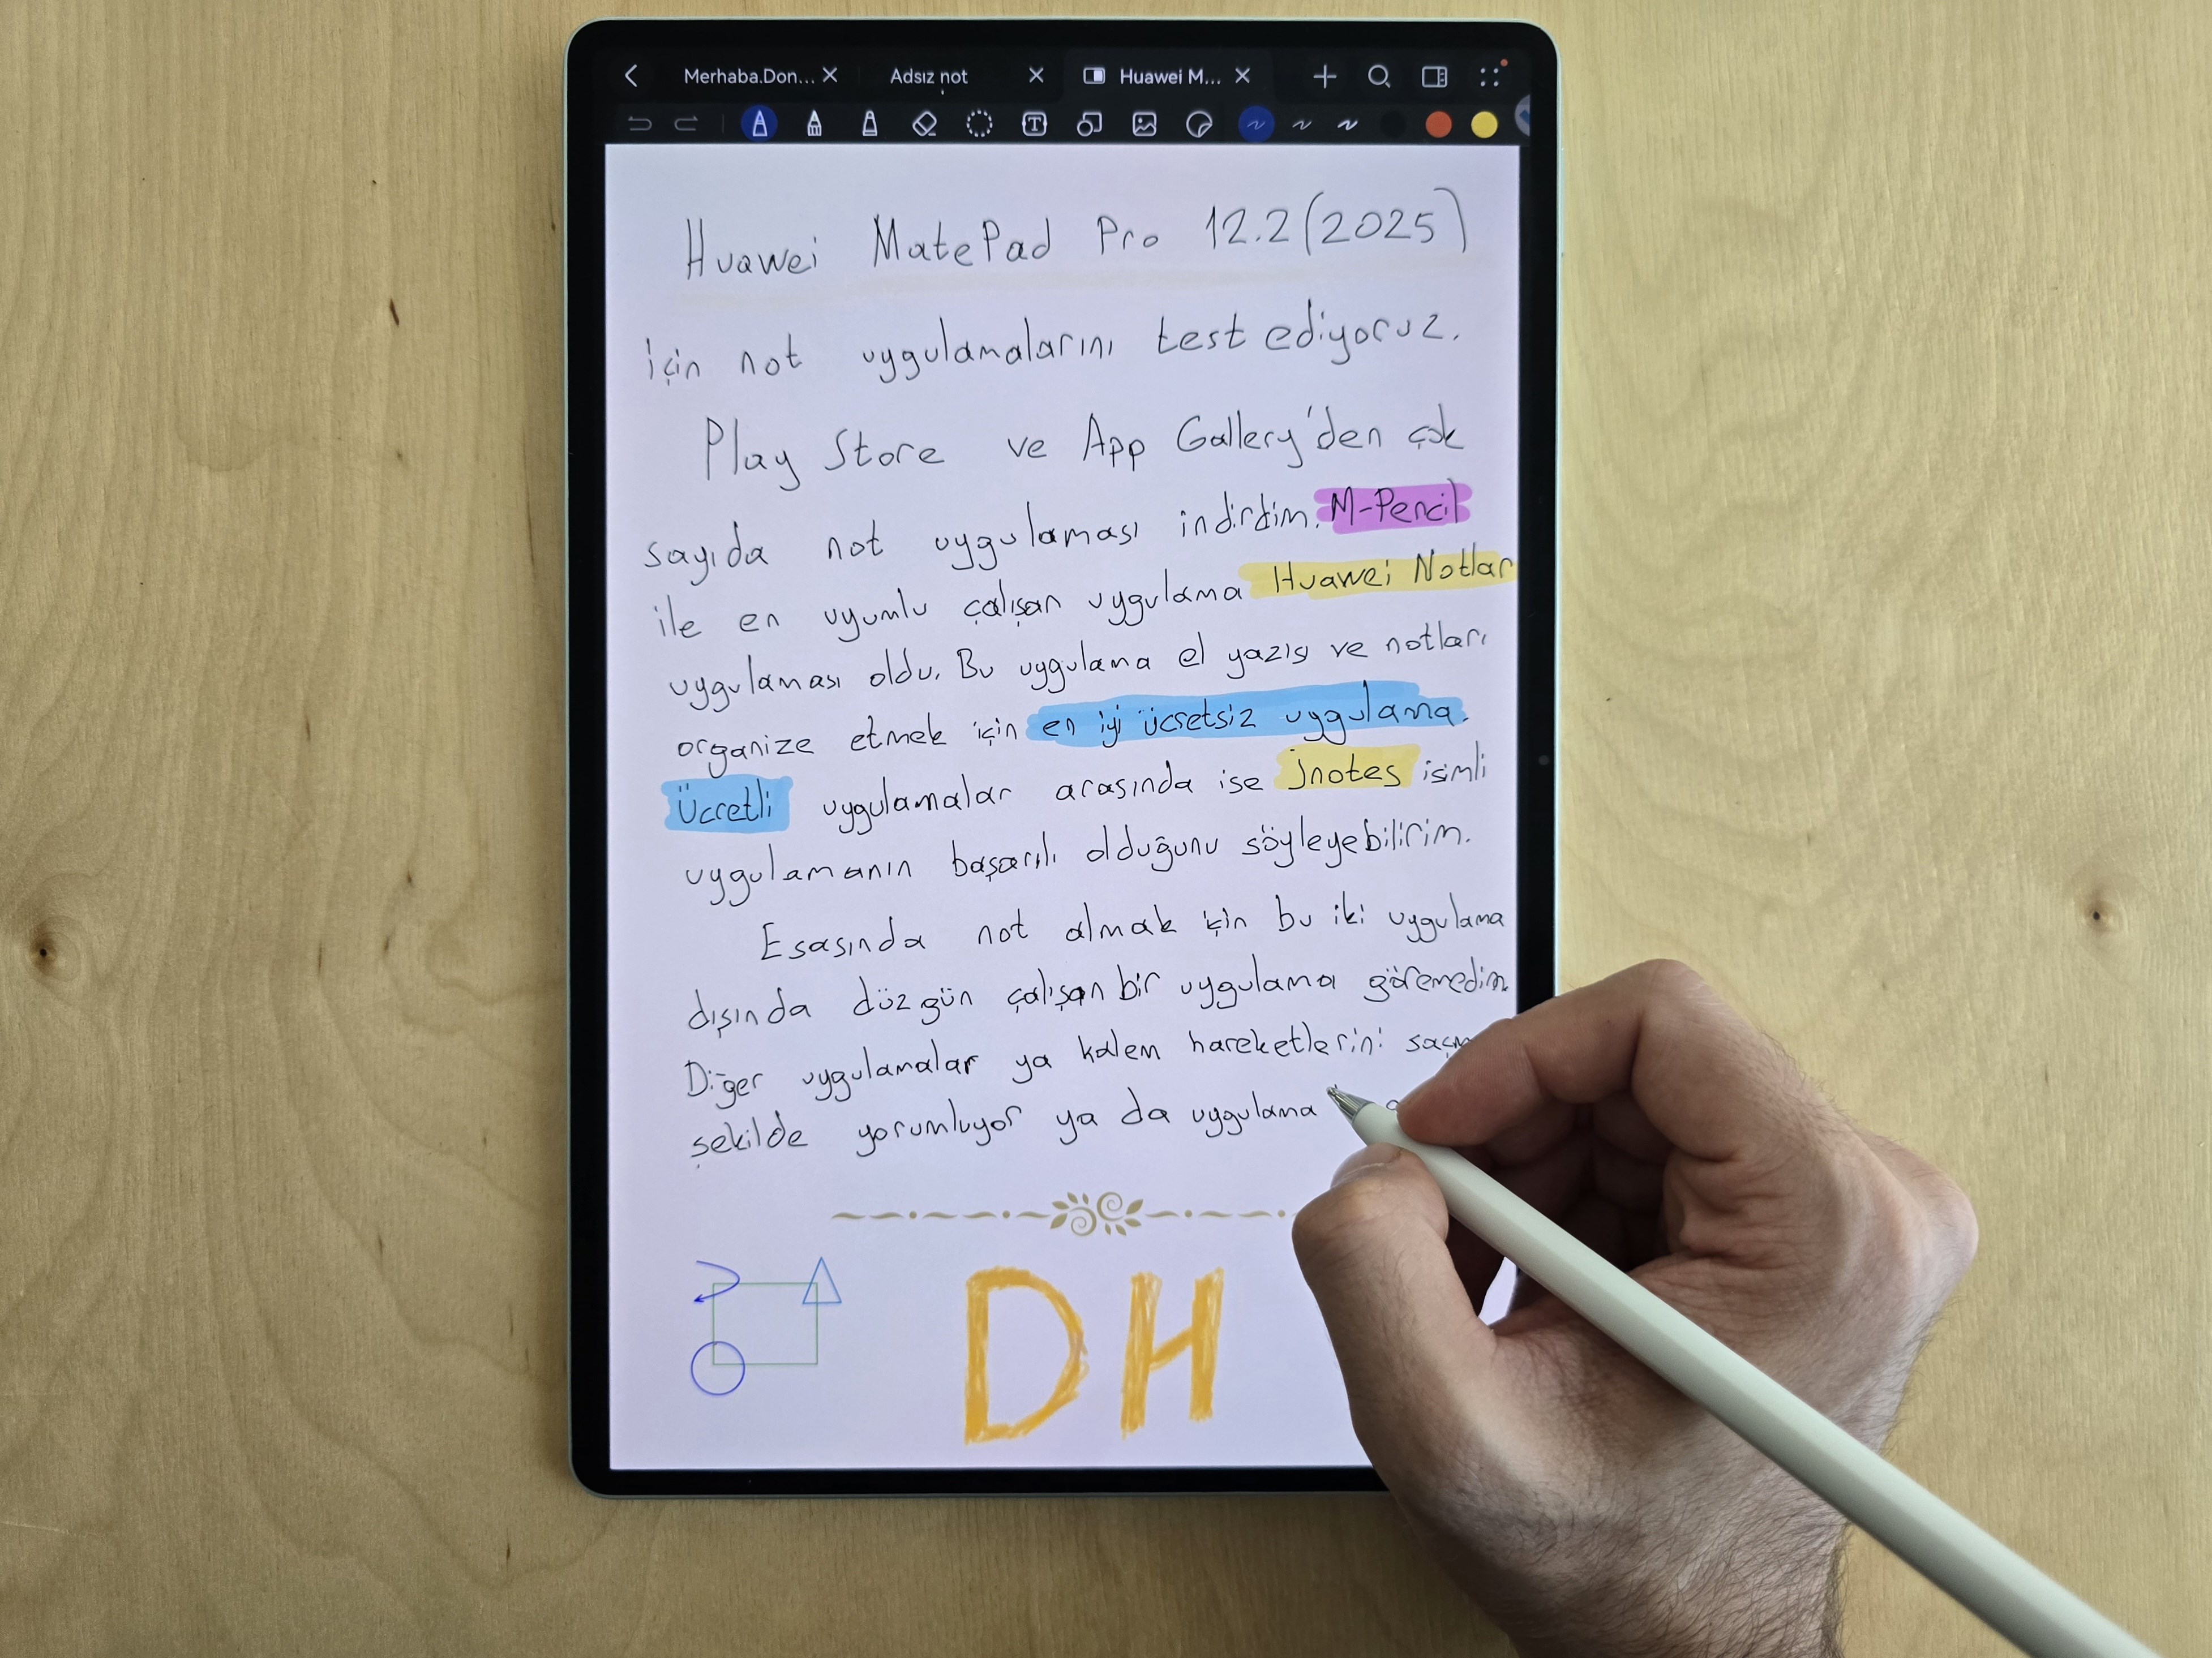 Merhaba.Don... Adsız not Huawei M...
Huawei MatePad Pro 12.2 (2025)
için not uygulamalarını test ediyoruz.
Play Store ve App Gallery'den çok
sayıda not uygulaması indirdim. M-Pencil
ile en uyumlu çalışan uygulama Huawei Notlar
uygulaması oldu. Bu uygulama el yazısı ve notları
organize etmek için en iyi ücretsiz uygulama.
Ücretli uygulamalar arasında ise jnotes isimli
uygulamanın başarılı olduğunu söyleyebilirim.
Esasında not almak için bu iki uygulama
dışında düzgün çalışan bir uygulama göremedim.
Diğer uygulamalar ya kalem hareketlerini
şekilde yorumluyor ya da uygulama
DH